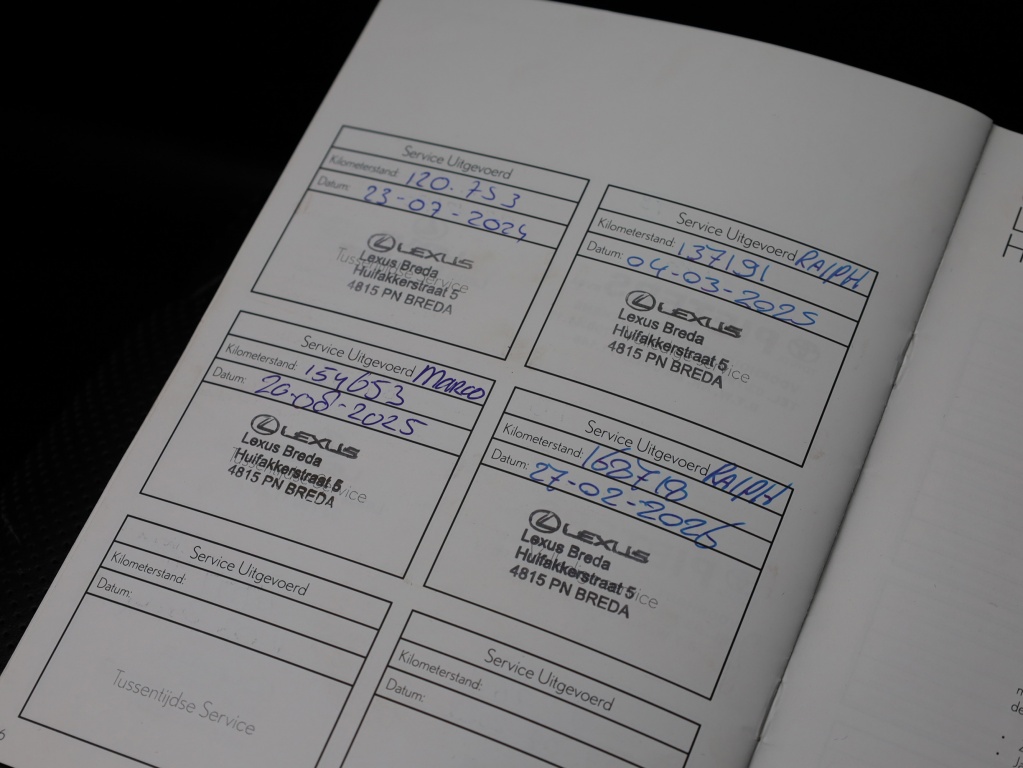 Service Uitgevoerd
Kilometerstand: 120.753
Datum: 23-07-2024
LEXUS
Lexus Breda
Tussentijdse Service
Huifakkerstraat 5
4815 PN BREDA
Service Uitgevoerd RALPH
Kilometerstand: 137191
Datum: 04-03-2025
LEXUS
Lexus Breda
Huifakkerstraat 5
Service
4815 PN BREDA
Service Uitgevoerd Marco
Kilometerstand: 154653
Datum: 20-08-2025
LEXUS
Lexus Breda
Huifakkerstraat 5
Service
4815 PN BREDA
Service Uitgevoerd RALPH
Kilometerstand:
Datum: 27-02-2026
LEXUS
Lexus Breda
Huifakkerstraat 5
4815 PN BREDA
Service Uitgevoerd
Kilometerstand:
Datum:
Tussentijdse Service
Service Uitgevoerd
Kilometerstand:
Datum: